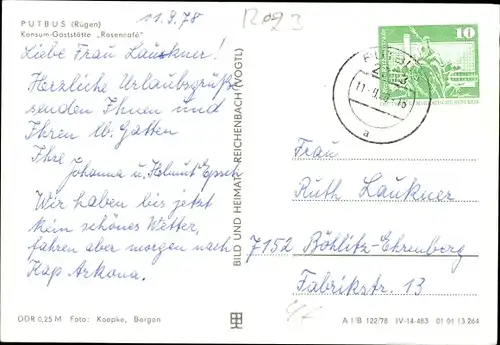 PUTBUS (Rügen)
Konsum-Gaststätte „Rosencafé"
11.9.78
Liebe Frau Laukner!
Herzliche Urlaubsgrüße
senden Ihnen und
Ihren lb. Gatten
Ihre
Johanna u. Helmut
Wir haben bis jetzt
kein schönes Wetter,
fahren aber morgen nach
Kap Arkona.
DDR 0,25 M Foto: Kaepke, Bergen
BILD UND HEIMAT REICHENBACH (VOGTL)
10
PUTBUS
a
Frau
Ruth Laukner
7152 Böhlitz-Ehrenberg
Fabrikstr. 13
A I/B 122/78 IV-14-483 01 01 13 264